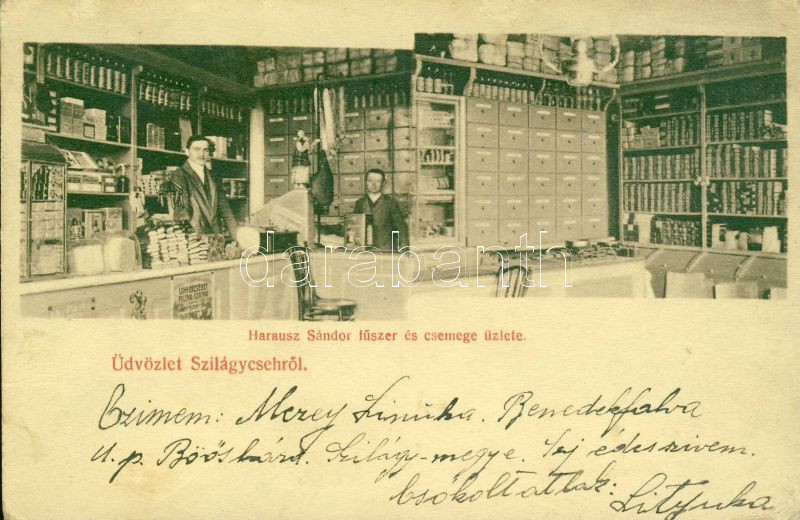 darabanth.com
Harausz Sándor fűszer és csemege üzlete.
Üdvözlet Szilágycsehről.
Czimem: Mezey Linuka. Benedekfalva
u. p. Böőshárd. Szilágy-megye. édes szivem.
Csókoltatlak: Lityuka